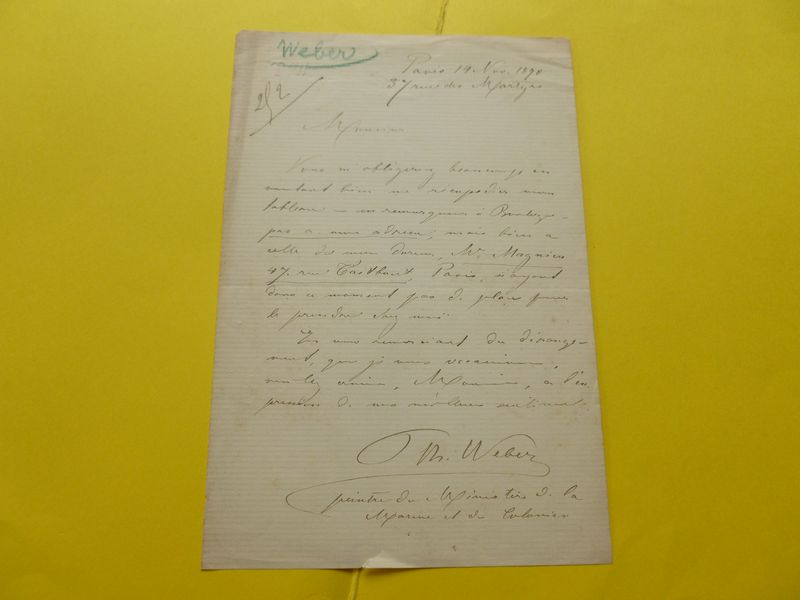 Weber
2/2
Paris 19 Nov. 1890
37 rue des Martyrs
Monsieur
Vous m'obligerez beaucoup en
voulant bien me réexpédier mon
tableau
pas à mon adresse, mais bien à
celle de mon doreur, Mr. Magnier
47, rue Taitbout, Paris, n'ayant
dans ce moment pas de place pour
le prendre chez moi.
En vous remerciant du dérange-
ment, que je vous occasionne,
veuillez croire, Monsieur, à l'ex
pression de mes meilleurs sentiments
Th. Weber
peintre du Ministère de la
Marine et des Colonies